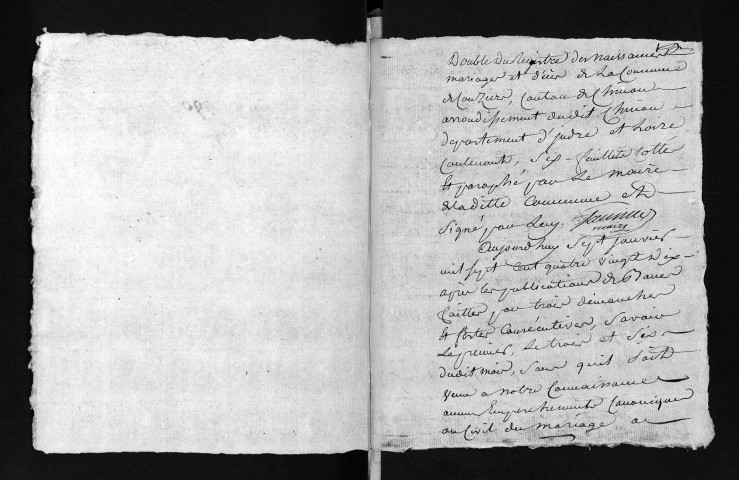 Double du Registre des naissances
mariages et décés de La Commune
de Couziers, Canton de Chinon
arrondissement dudit Chinon
departement d'jndre et Loire
Contenant, Six feuillets cotté
Et paraphé par Le maire
de Laditte Commune et
Signé par Luy
maire
Aujourdhuy Sept janvier
mil sept Cent quatre vingt dix
après les publications de Bancs
faittes par trois dimanches
Et festes Consécutives, Savoir
Le premier, Le trois et Six
dudit mois, Sans quil Soit
Venu a notre Connaissance
aucun Empeschements Canonique
ou Civil du mariage a